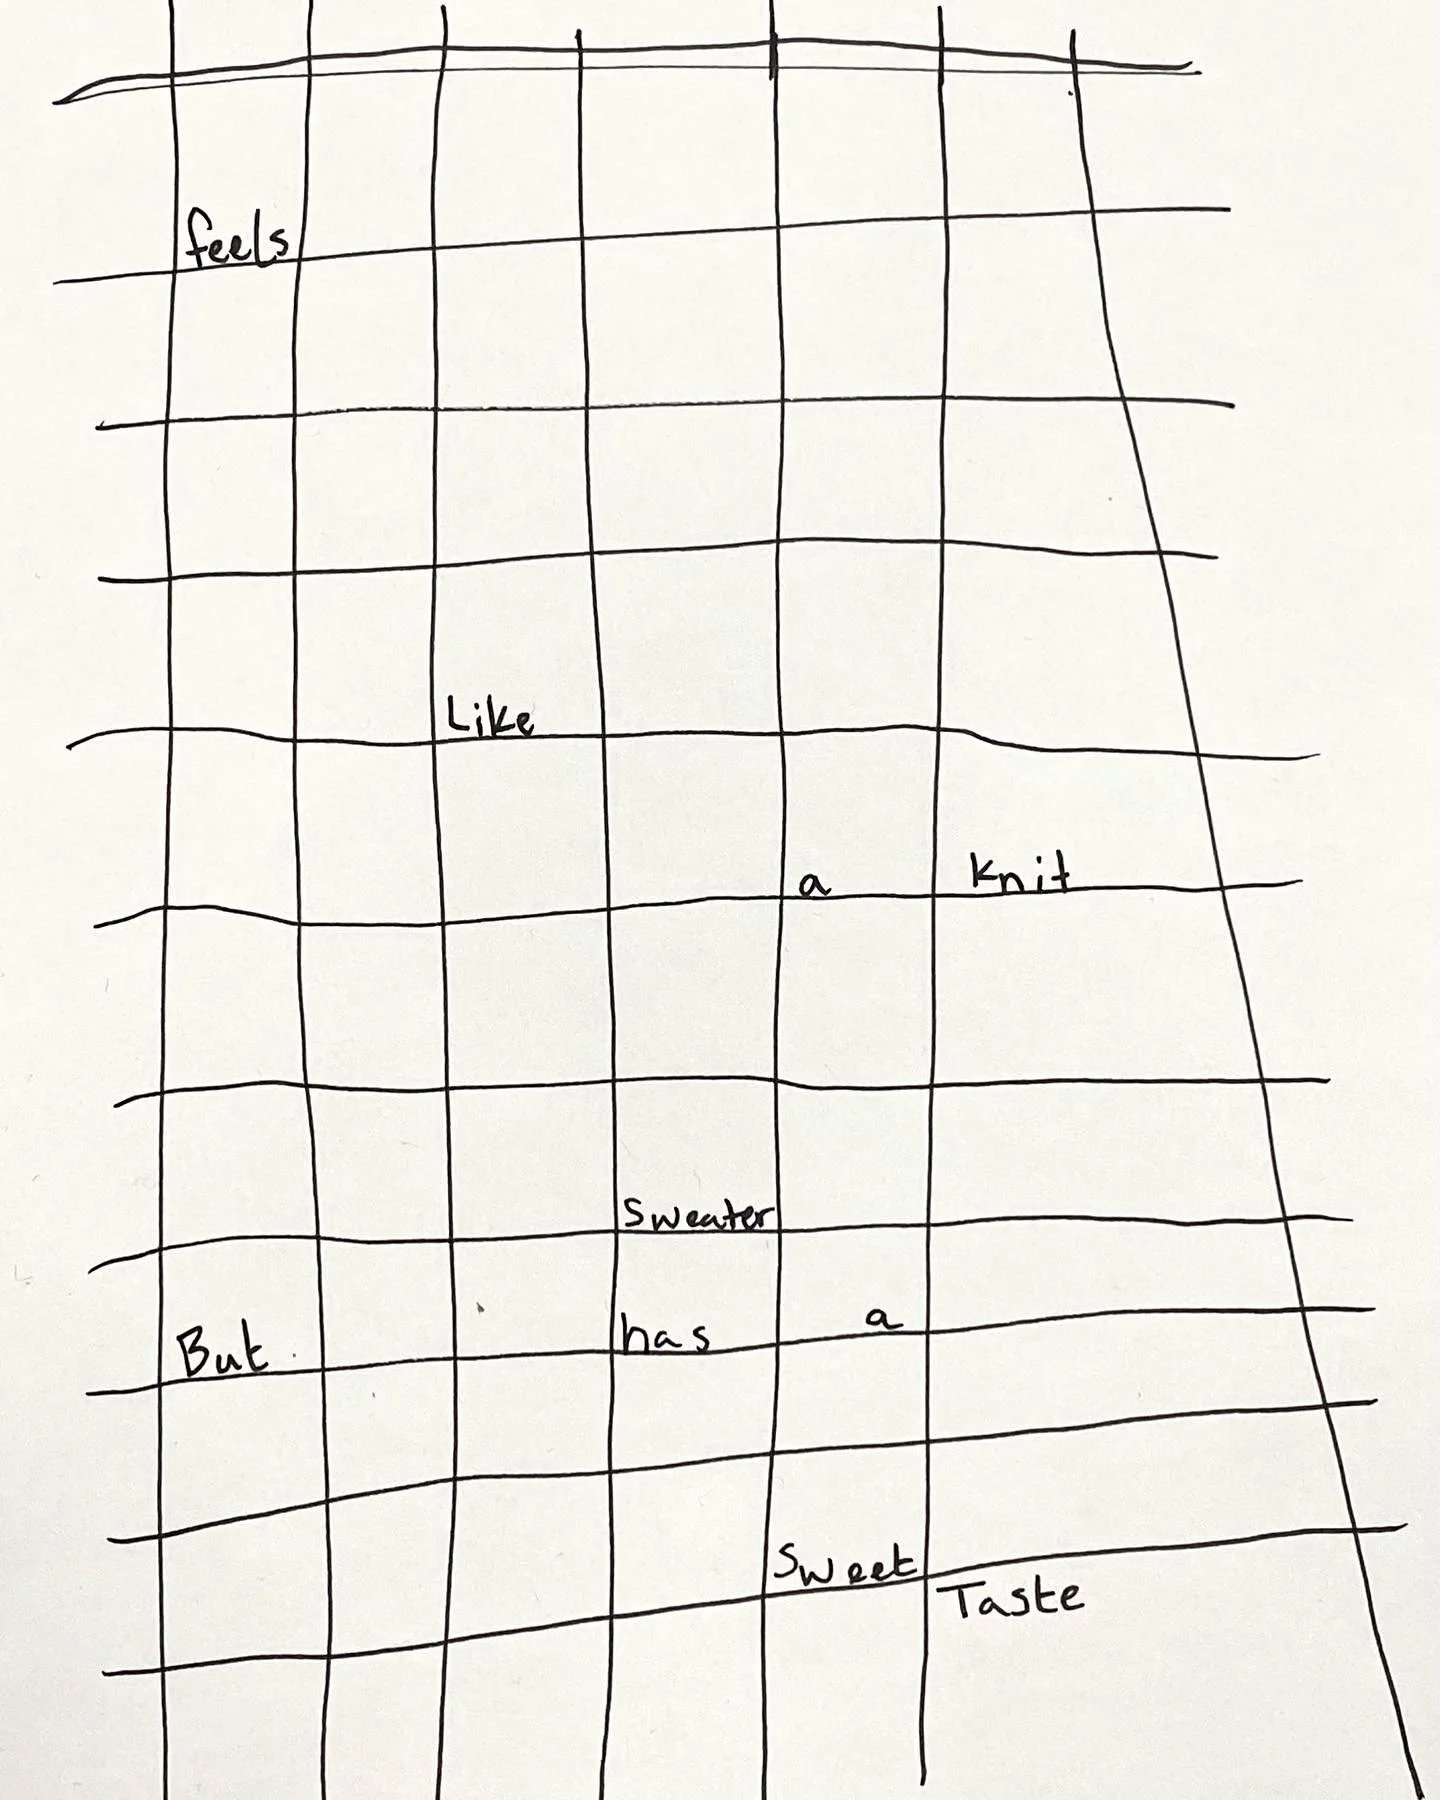 feels
Like
a Knit
Sweater
But has a
Sweet
Taste